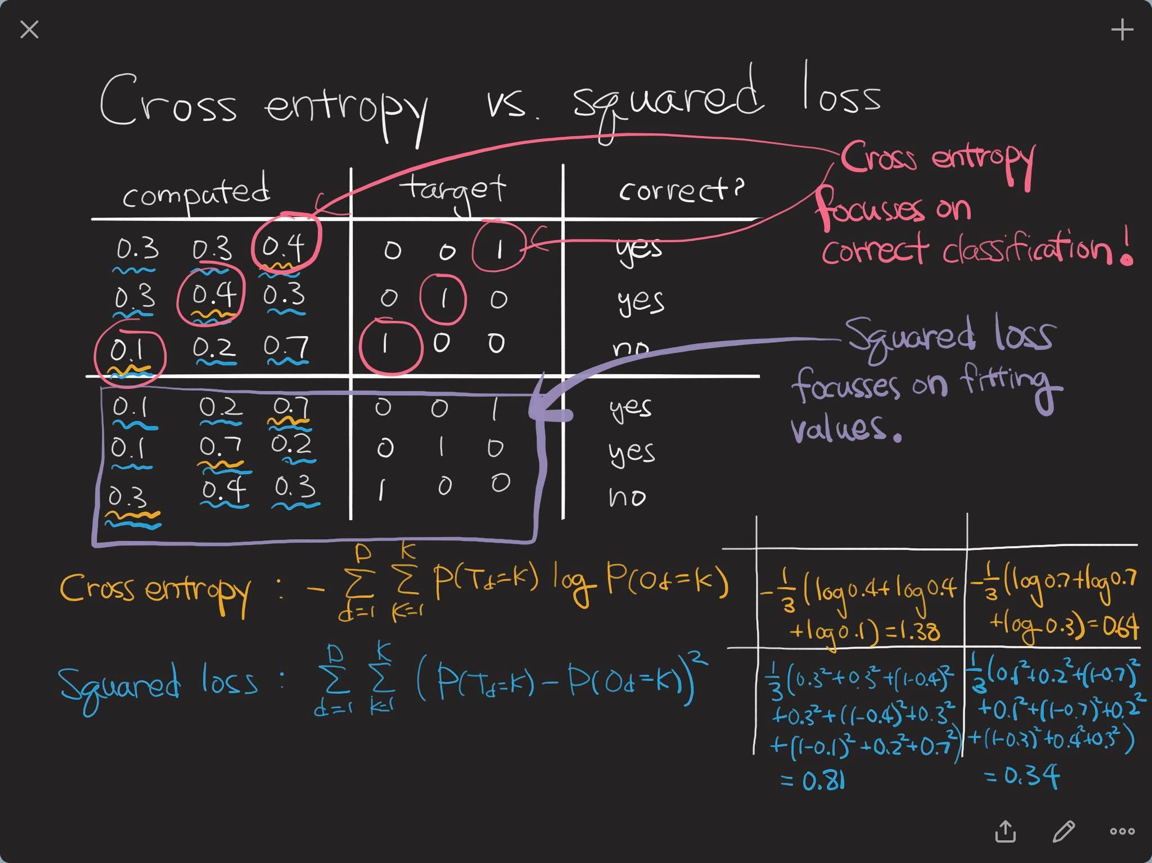 Cross entropy vs. squared loss
computed target correct?
0.3 0.3 0.4 0 0 1 yes
0.3 0.4 0.3 0 1 0 yes
0.1 0.2 0.7 1 0 0 no
0.1 0.2 0.7 0 0 1 yes
0.1 0.7 0.2 0 1 0 yes
0.3 0.4 0.3 1 0 0 no
Cross entropy
focuses on
correct classification!
Squared loss
focusses on fitting
values.
Cross entropy : - D∑d=1 K∑k=1 P(Td=k) log P(Od=k)
Squared loss : D∑d=1 K∑k=1 (P(Td=k) - P(Od=k))²
-1/3 (log 0.4 + log 0.4
+ log 0.1) = 1.38
-1/3 (log 0.7 + log 0.7
+ log 0.3) = 0.64
1/3 (0.3² + 0.3² + (1-0.4)²
+ 0.3² + (1-0.4)² + 0.3²
+ (1-0.1)² + 0.2² + 0.7²)
= 0.81
1/3 (0.1² + 0.2² + (1-0.7)²
+ 0.1² + (1-0.7)² + 0.2²
+ (1-0.3)² + 0.4² + 0.3²)
= 0.34